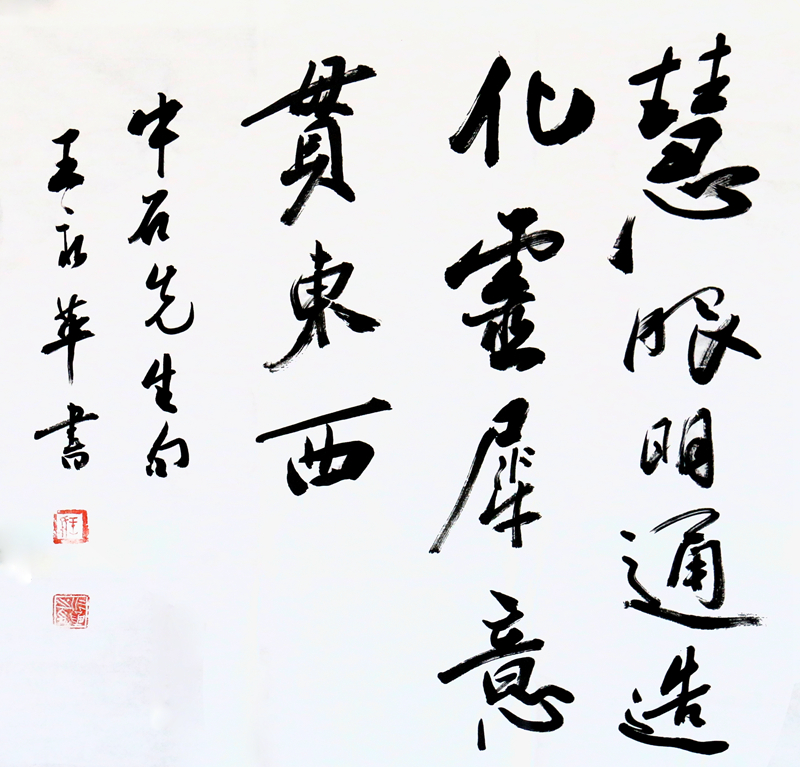 慧眼明通造
化靈犀意
貫東西
中石先生句
王永華書